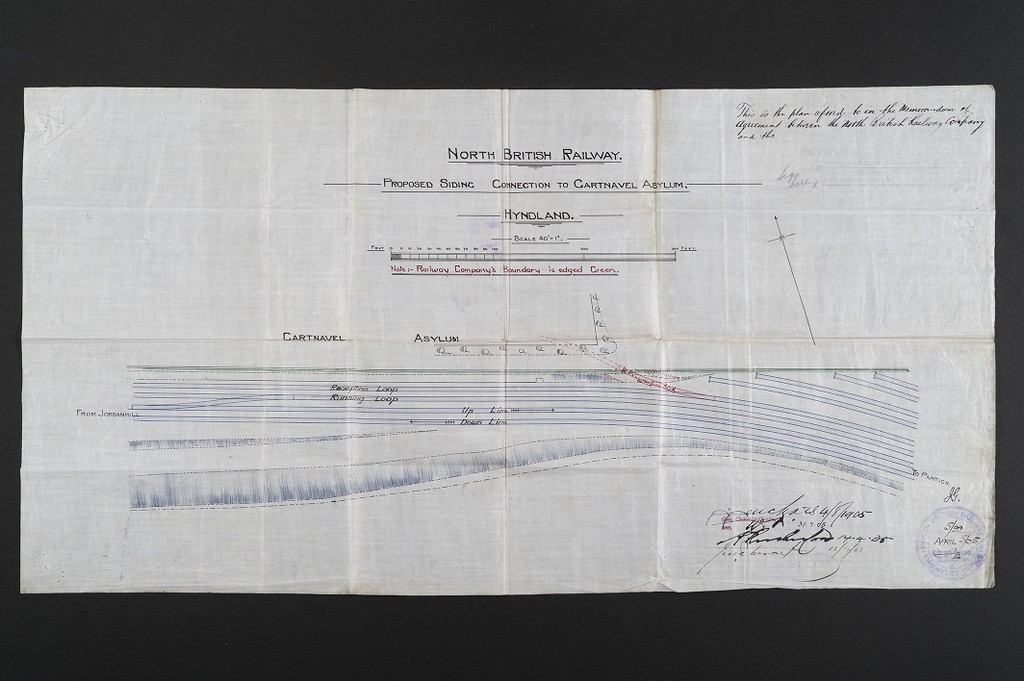 This is the plan referred to in the Memorandum of
Agreement between the North British Railway Company
and the
NORTH BRITISH RAILWAY.
PROPOSED SIDING CONNECTION TO GARTNAVEL ASYLUM,
HYNDLAND.
SCALE 40'=1".
FEET 10 0 10 20 30 40 50 60 70 80 90 100 200 300 FEET.
Note:- Railway Company's Boundary is edged Green.
GARTNAVEL ASYLUM
Reception Loop
Running Loop
FROM JORDANHILL
Up Line
Down Line
TO PARTICK
4/8/1905
31.7.05
14.9.05
5/99
APRIL - 5/05